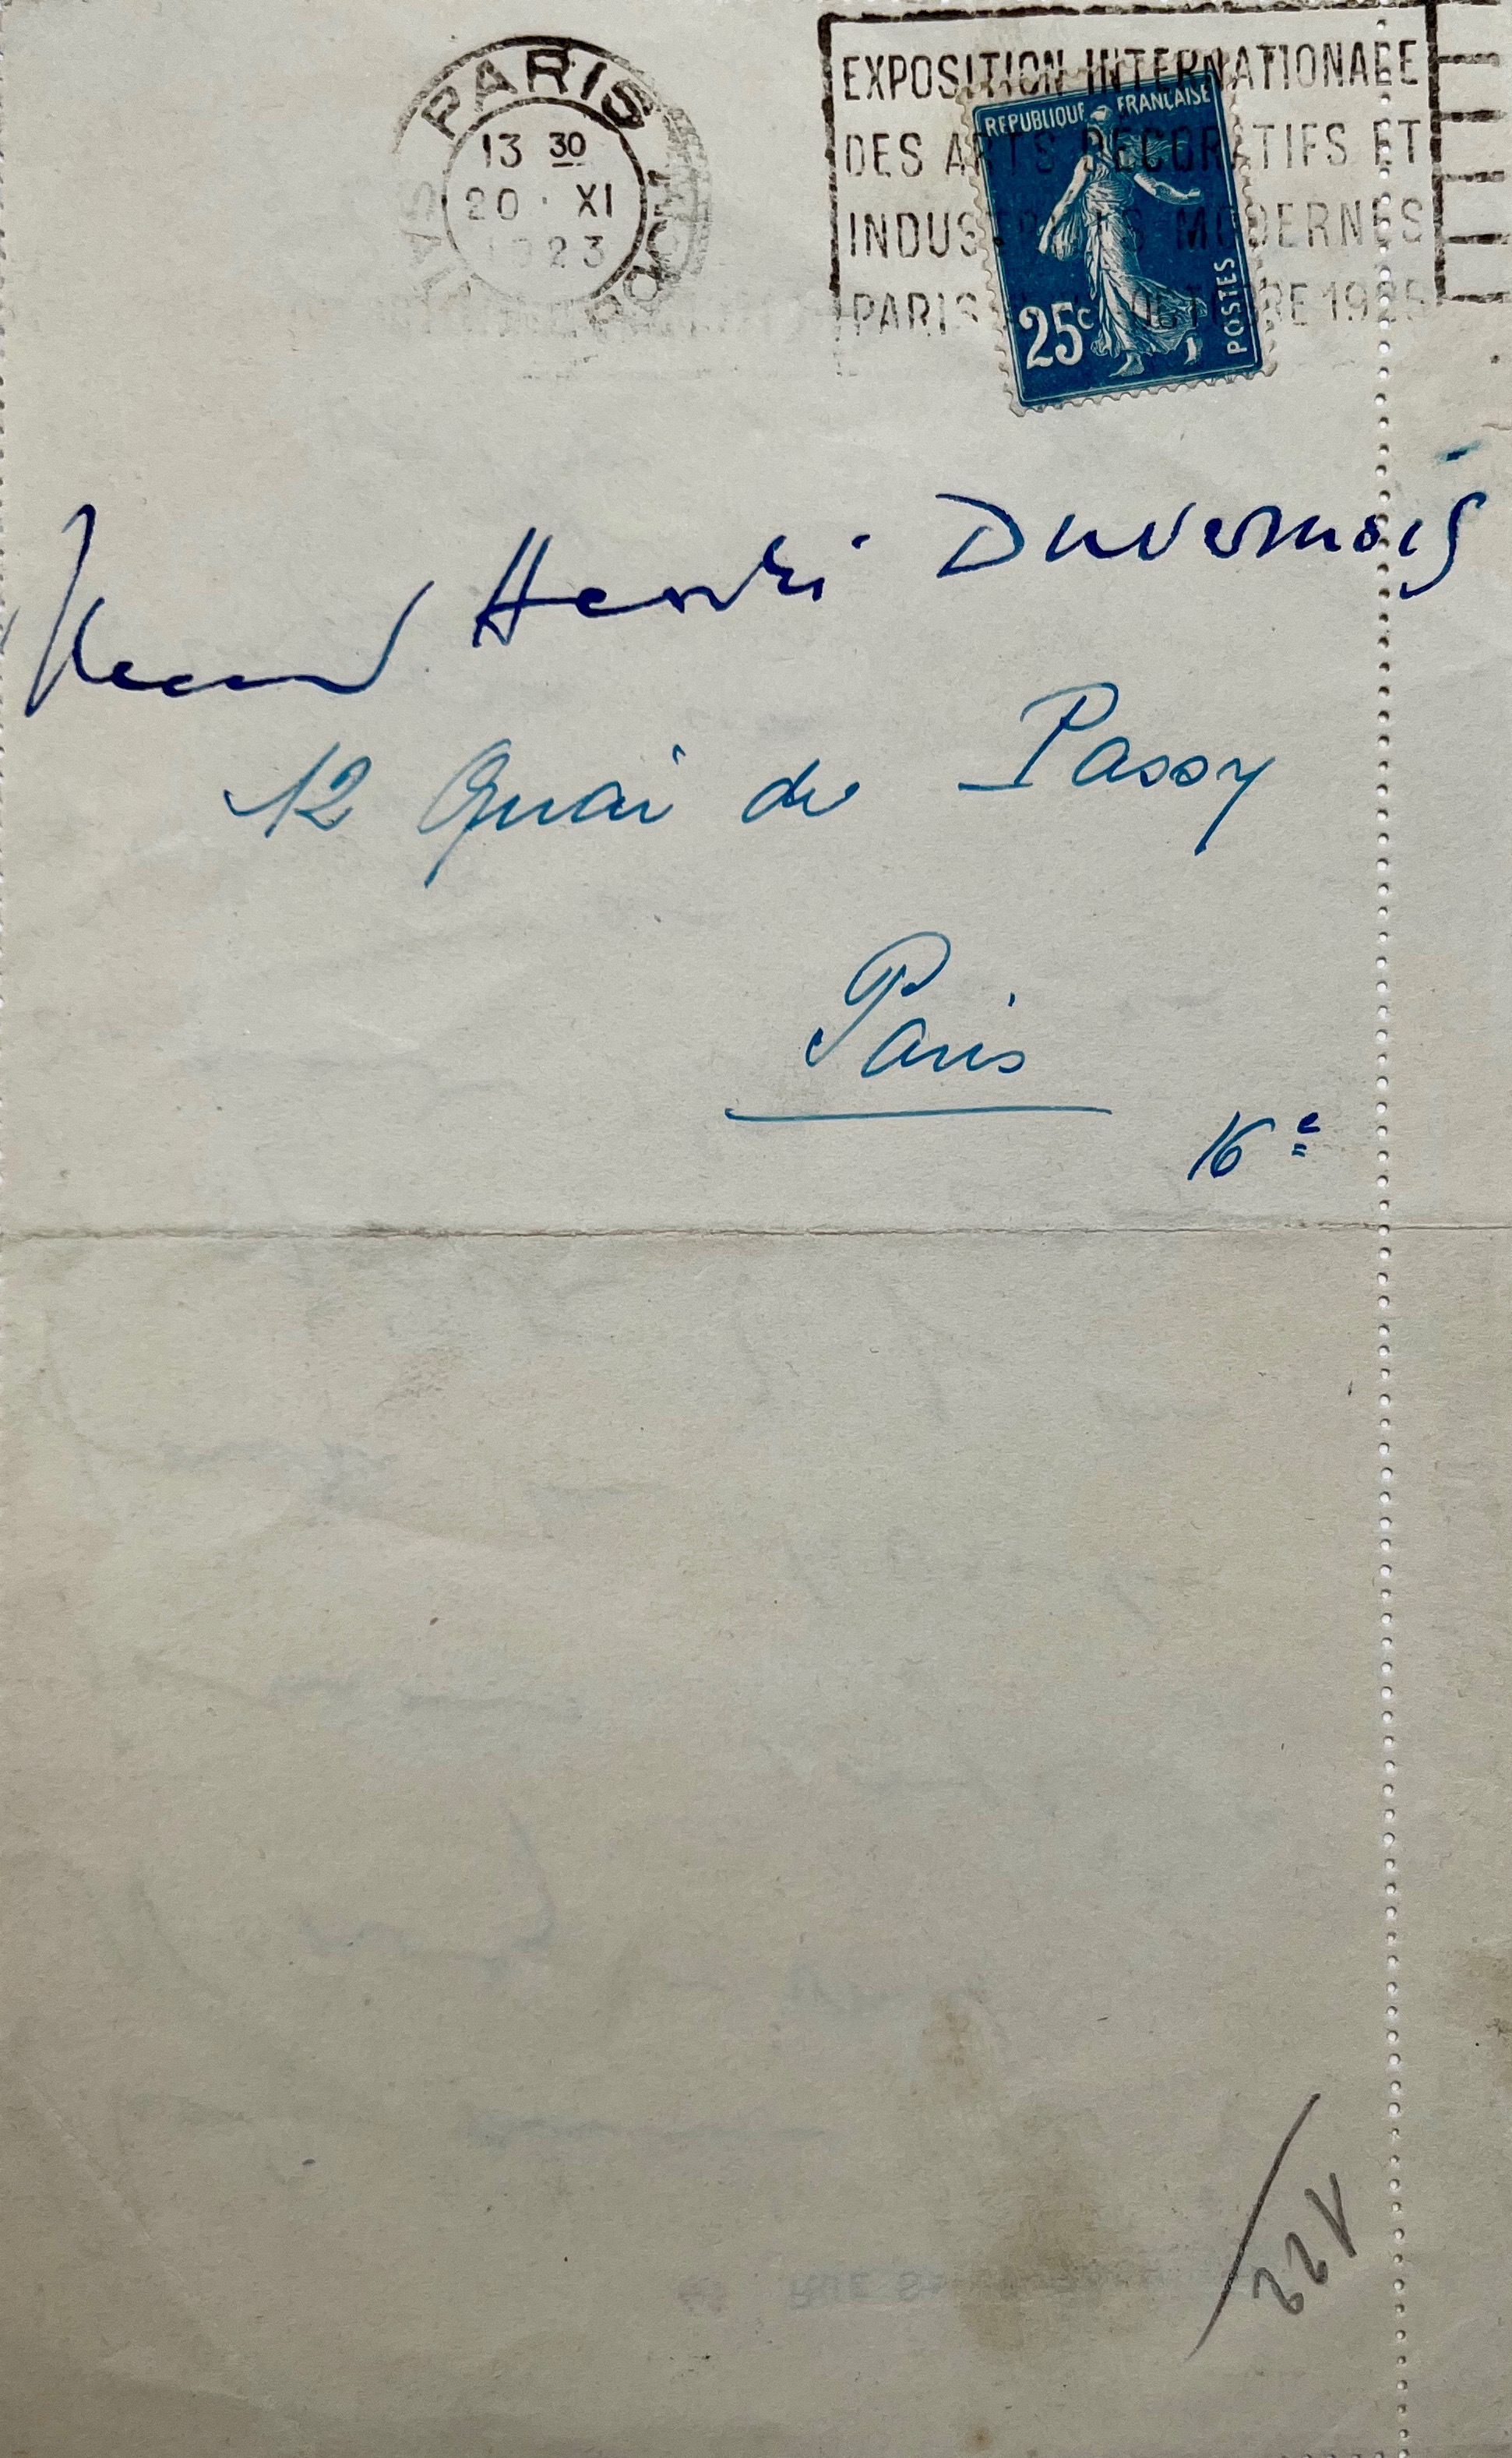 PARIS
13 30
20 · XI
1923
EXPOSITION INTERNATIONALE
DES ARTS DÉCORATIFS ET
INDUSTRIELS MODERNES
PARIS OCTOBRE 1925
REPUBLIQUE FRANÇAISE
25c
POSTES
Henri Duvernois
12 Quai de Passy
Paris
16e
122
RUE